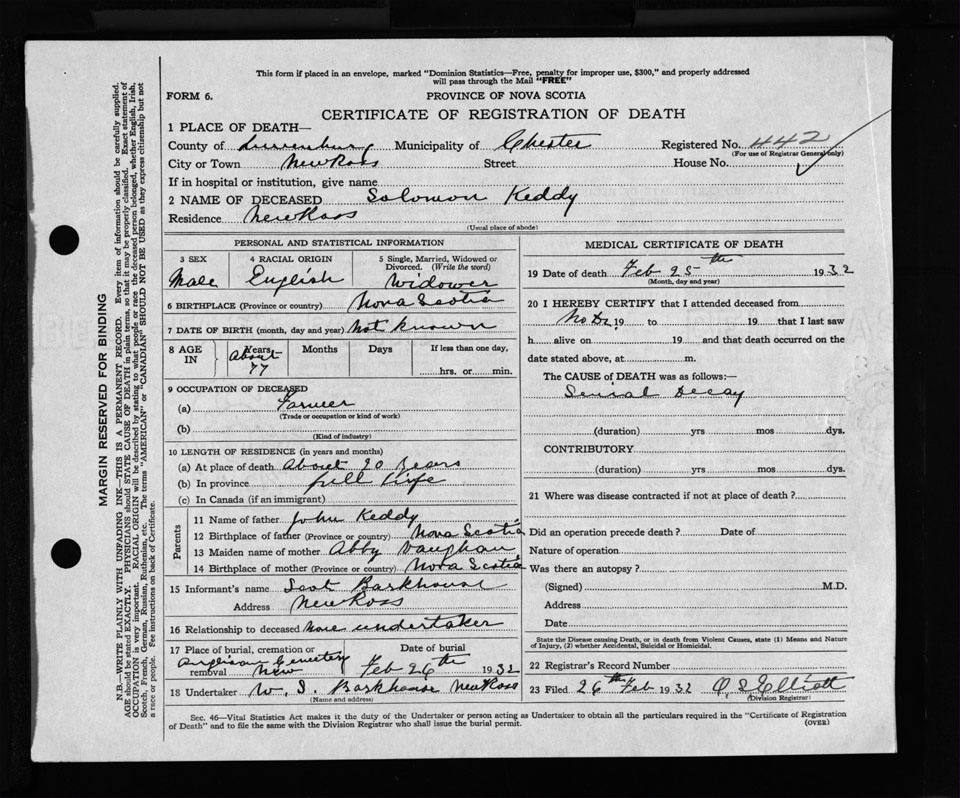 This form if placed in an envelope, marked "Dominion Statistics—Free, penalty for improper use, $300," and properly addressed
will pass through the Mail "FREE"
FORM 6.
PROVINCE OF NOVA SCOTIA
CERTIFICATE OF REGISTRATION OF DEATH
1 PLACE OF DEATH—
County of Lunenburg Municipality of Chester Registered No. 442
(For use of Registrar General only)
City or Town New Ross Street House No.
If in hospital or institution, give name
2 NAME OF DECEASED Solomon Keddy
Residence New Ross
(Usual place of abode)
PERSONAL AND STATISTICAL INFORMATION
3 SEX 4 RACIAL ORIGIN 5 Single, Married, Widowed or
Divorced. (Write the word)
Male English Widower
6 BIRTHPLACE (Province or country) Nova Scotia
7 DATE OF BIRTH (month, day and year) Not known
8 AGE IN Years Months Days If less than one day,
About 77 hrs. or min.
9 OCCUPATION OF DECEASED
(a) Farmer
(Trade or occupation or kind of work)
(b)
(Kind of industry)
10 LENGTH OF RESIDENCE (in years and months)
(a) At place of death About 20 Years
(b) In province full Life
(c) In Canada (if an immigrant)
Parents
11 Name of father John Keddy
12 Birthplace of father (Province or country) Nova Scotia
13 Maiden name of mother Abby Vaughan
14 Birthplace of mother (Province or country) Nova Scotia
15 Informant's name Scot Barkhouse
Address New Ross
16 Relationship to deceased None undertaker
17 Place of burial, cremation or removal Date of burial
Anglican Cemetery
New Feb 26th 1932
18 Undertaker W. S. Barkhouse New Ross
(Name and address)
MEDICAL CERTIFICATE OF DEATH
19 Date of death Feb 25th 1932
(Month, day and year)
20 I HEREBY CERTIFY that I attended deceased from
No Dr 19 to 19 that I last saw
h alive on 19 and that death occurred on the
date stated above, at m.
The CAUSE of DEATH was as follows:—
Senial Decay
(duration) yrs mos dys.
CONTRIBUTORY
(duration) yrs mos dys.
21 Where was disease contracted if not at place of death?
Did an operation precede death? Date of
Nature of operation
Was there an autopsy?
(Signed) M.D.
Address
Date
State the Disease causing Death, or in death from Violent Causes, state (1) Means and Nature
of Injury, (2) whether Accidental, Suicidal or Homicidal.
22 Registrar's Record Number
23 Filed 26th Feb 1932
(Division Registrar)
Sec. 46—Vital Statistics Act makes it the duty of the Undertaker or person acting as Undertaker to obtain all the particulars required in the "Certificate of Registration
of Death" and to file the same with the Division Registrar who shall issue the burial permit. (OVER)
MARGIN RESERVED FOR BINDING
N.B.—WRITE PLAINLY WITH UNFADING INK—THIS IS A PERMANENT RECORD. Every item of information should be carefully supplied.
AGE should be stated EXACTLY. PHYSICIANS should STATE CAUSE OF DEATH in plain terms, so that it may be properly classified. Exact statement of
OCCUPATION is very important. RACIAL ORIGIN will be described by stating to what people or race the deceased person belonged, whether English, Irish,
Scotch, French, German, Russian, Ruthenian, etc. The terms "AMERICAN" or "CANADIAN" SHOULD NOT BE USED as they express citizenship but not
a race or people. See instructions on back of Certificate.